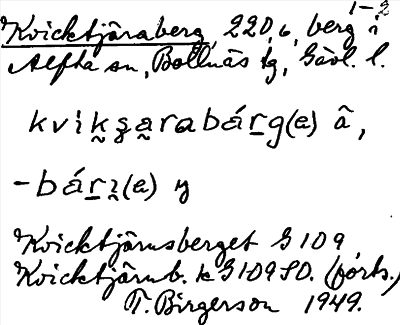 1-2
Kvicktjäraberg, 220,6, berg i
Alfta sn, Bollnäs tg, Gävl. l.
kvik̯s̯a̯rabár̲g(e) â,
-bár̲i̯(e) y
Kvicktjärnsberget G109
Kvicktjärnb. k G109SO. (förk.)
T. Birgerson 1949.